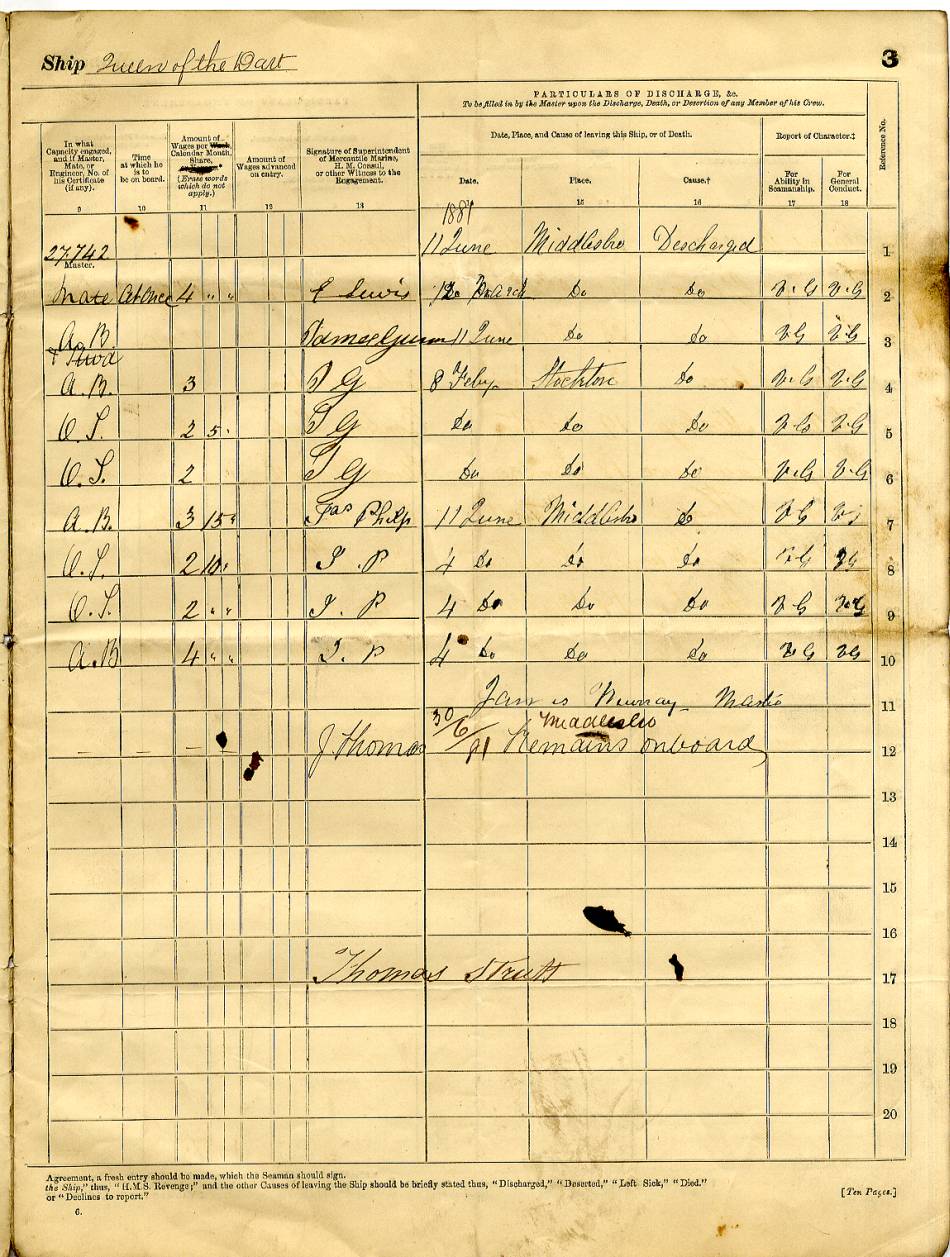 Ship Queen of the Dart
3
PARTICULARS OF DISCHARGE, &c.
To be filled in by the Master upon the Discharge, Death, or Desertion of any Member of his Crew.
In what Capacity engaged, and if Master, Mate, or Engineer, No. of his Certificate (if any).
Time at which he is to be on board.
Amount of Wages per Week, Calendar Month, Share, (Erase words which do not apply.)
Amount of Wages advanced on entry.
Signature of Superintendent of Mercantile Marine, H. M. Consul, or other Witness to the Engagement.
Date, Place, and Cause of leaving this Ship, or of Death.
Report of Character.‡
Reference No.
Date.
Place.
Cause.†
For Ability in Seamanship.
For General Conduct.
9 10 11 12 13 15 16 17 18
27.742 Master. 11 June Middlesbro Descharged 1
Mate At Once 4 " " E Lewis March Do Do V.G V.G 2
A.B. + 11 June Do Do V G V.G 3
A.B. 3 J G 8 Feby Stockton Do V.G V.G 4
O.S. 2 5 " J G Do Do Do V.G V.G 5
O.S. 2 J G Do Do Do V.G V.G 6
A.B. 3 15 " Jas Philp 11 June Middlesbro Do V G V G 7
O.S. 2 10 " J.P 4 Do Do Do V.G V G 8
O.S. 2 " " J.P 4 Do Do Do V G V.G 9
A.B 4 " " J.P 4 Do Do Do V G V G 10
James Murray Master
11
30/6/91 Middlesbro
J Thomas Remains onboard 12
13
14
15
16
Thomas Strutt 17
18
19
20
Agreement, a fresh entry should be made, which the Seaman should sign.
the Ship," thus, "H.M.S. Revenge;" and the other Causes of leaving the Ship should be briefly stated thus, "Discharged," "Deserted," "Left Sick," "Died."
or "Declines to report."
[Ten Pages.]